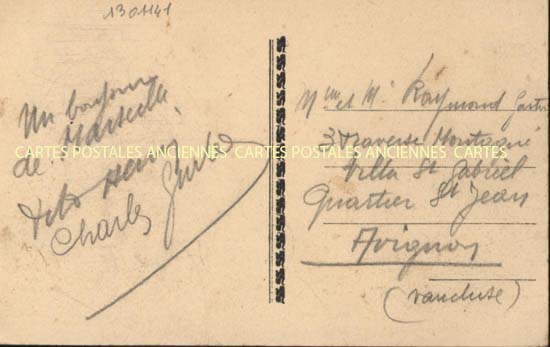 1301141
Un bonjour
de Marseille.
Charles
CARTES POSTALES ANCIENNES CARTES POSTALES ANCIENNES CARTES POSTALES ANCIENNES
Mme et Mr Raymond
3 Traverse Montagné
Villa St Gabriel
Quartier St Jean
Avignon
(vaucluse)